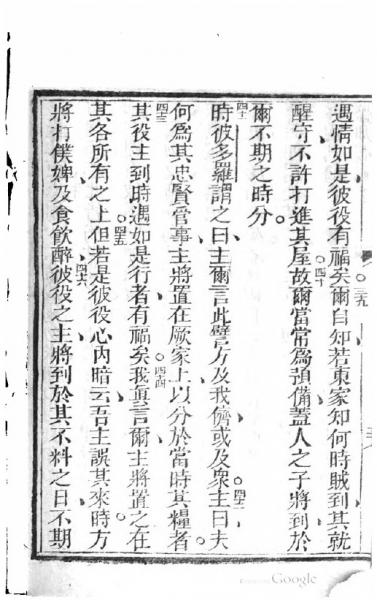 遇情如是彼役有福矣爾自知若東家知何時賊到其就
三九
醒守不許打進其屋故爾當常爲預備蓋人之子將到於
四十
爾不期之時分
四一
時彼多羅謂之曰主爾言此譬方及我儕或及衆主曰夫
四二
何爲其忠賢當事主將置在厥家上以分於當時其糧者
四三
其役主到時遇如是行者有福矣我眞言爾主將置之在
四四
其各所有之上但若是彼役心內暗云吾主誤其來時方
四五
將打僕婢及食飲醉彼役之主將到於其不料之日不期
四六
Google